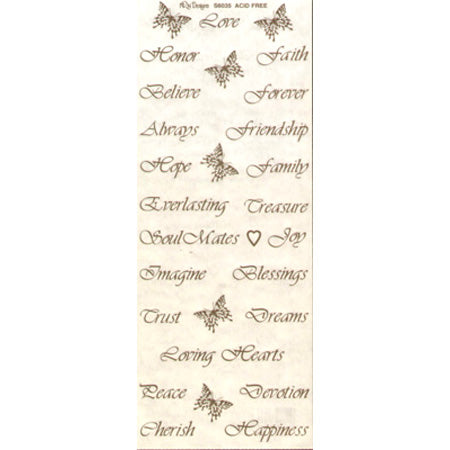 Designs S6035 ACID FREE
Love
Honor Faith
Believe Forever
Always Friendship
Hope Family
Everlasting Treasure
SoulMates Joy
Imagine Blessings
Trust Dreams
Loving Hearts
Peace Devotion
Cherish Happiness